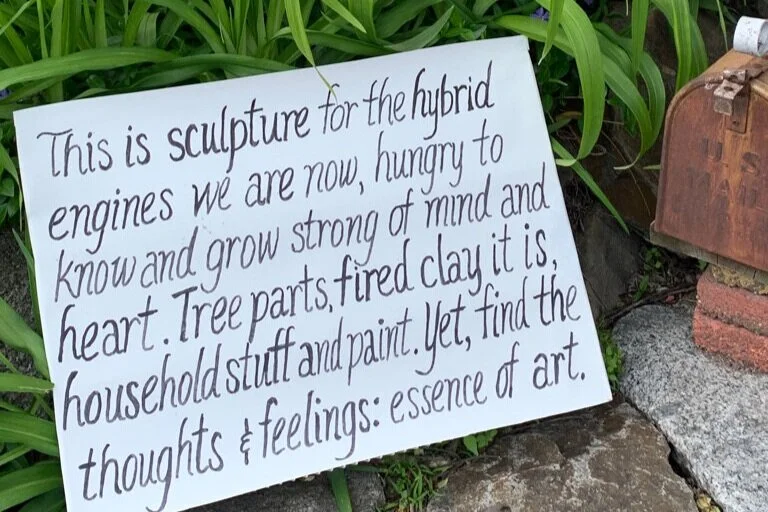 This is sculpture for the hybrid
engines we are now, hungry to
know and grow strong of mind and
heart. Tree parts, fired clay it is,
household stuff and paint. Yet, find the
thoughts & feelings: essence of art.
U.S.
MAIL